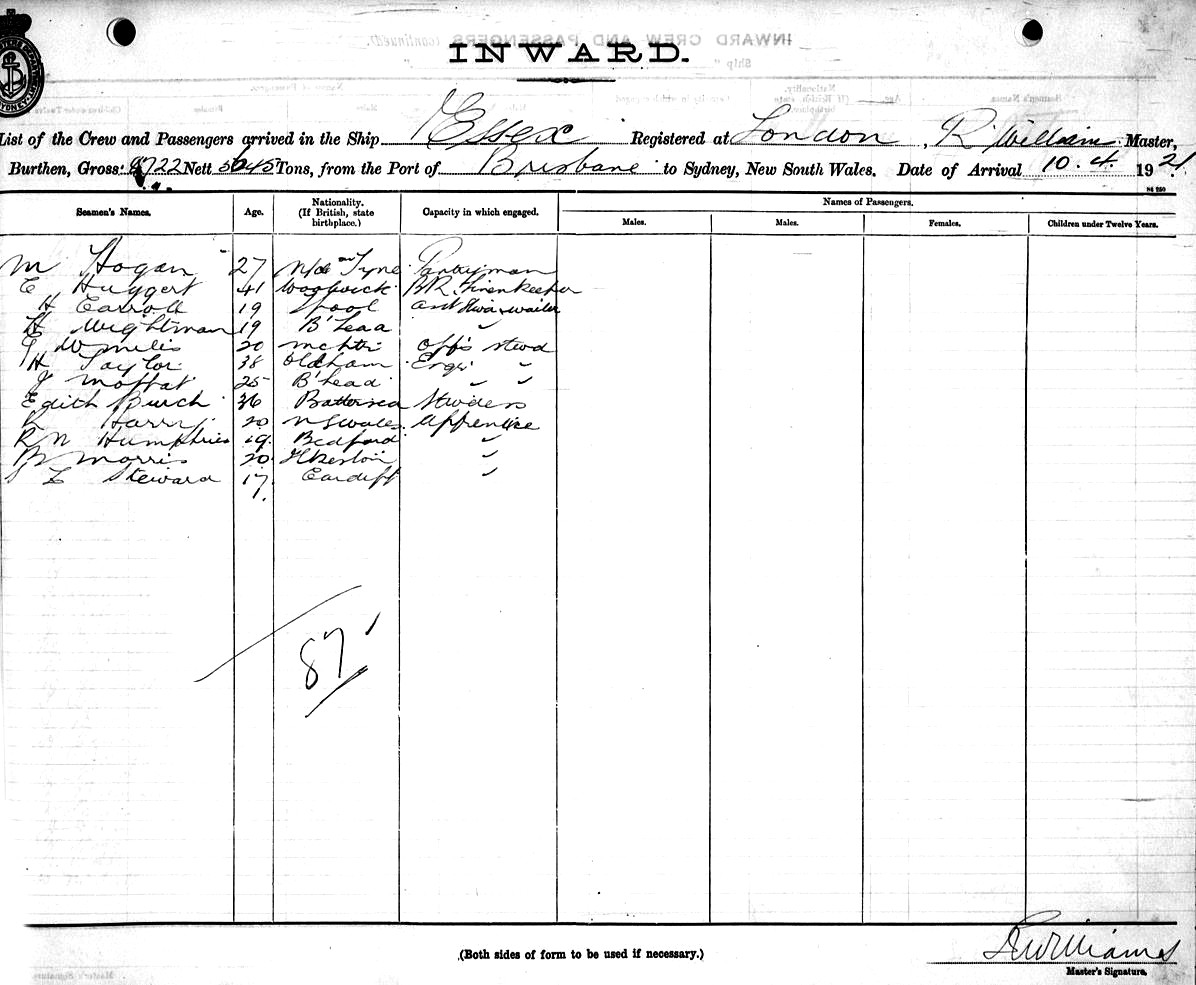 INWARD.
List of the Crew and Passengers arrived in the Ship Essex Registered at London, R Williams Master,
Burthen, Gross 8722 Nett 5645 Tons, from the Port of Brisbane to Sydney, New South Wales. Date of Arrival 10.4.1921.
Seamen's Names. Age. Nationality. (If British, state birthplace.) Capacity in which engaged. Names of Passengers.
Males. Males. Females. Children under Twelve Years.
M Hogan 27 N/c on Tyne Pantryman
E Huggert 41 Woolwick BR. Linenkeeper
H Carroll 19 L'pool asst waiter
H Wightman 19 B'head "
20 Mchtr Offs stwd
H Taylor 38 Oldham Engr "
J Moffat 25 B'head " "
Edith Burch 36 Battersea Stwdess
Harry 20 N S Wales Apprentice
R N Humphries 19 Bedford "
B Morris 20 Ilkeston "
L Steward 17 Cardiff "
1.
87
(Both sides of form to be used if necessary.)
R Williams
Master's Signature.